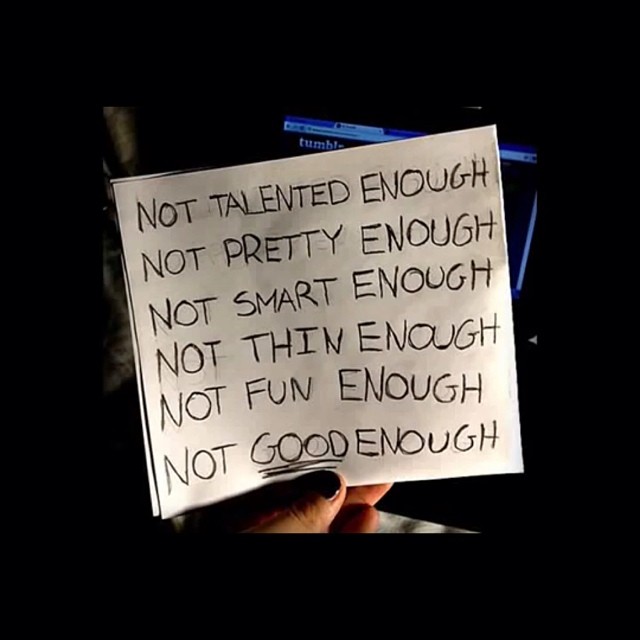 tumblr
NOT TALENTED ENOUGH
NOT PRETTY ENOUGH
NOT SMART ENOUGH
NOT THIN ENOUGH
NOT FUN ENOUGH
NOT GOOD ENOUGH